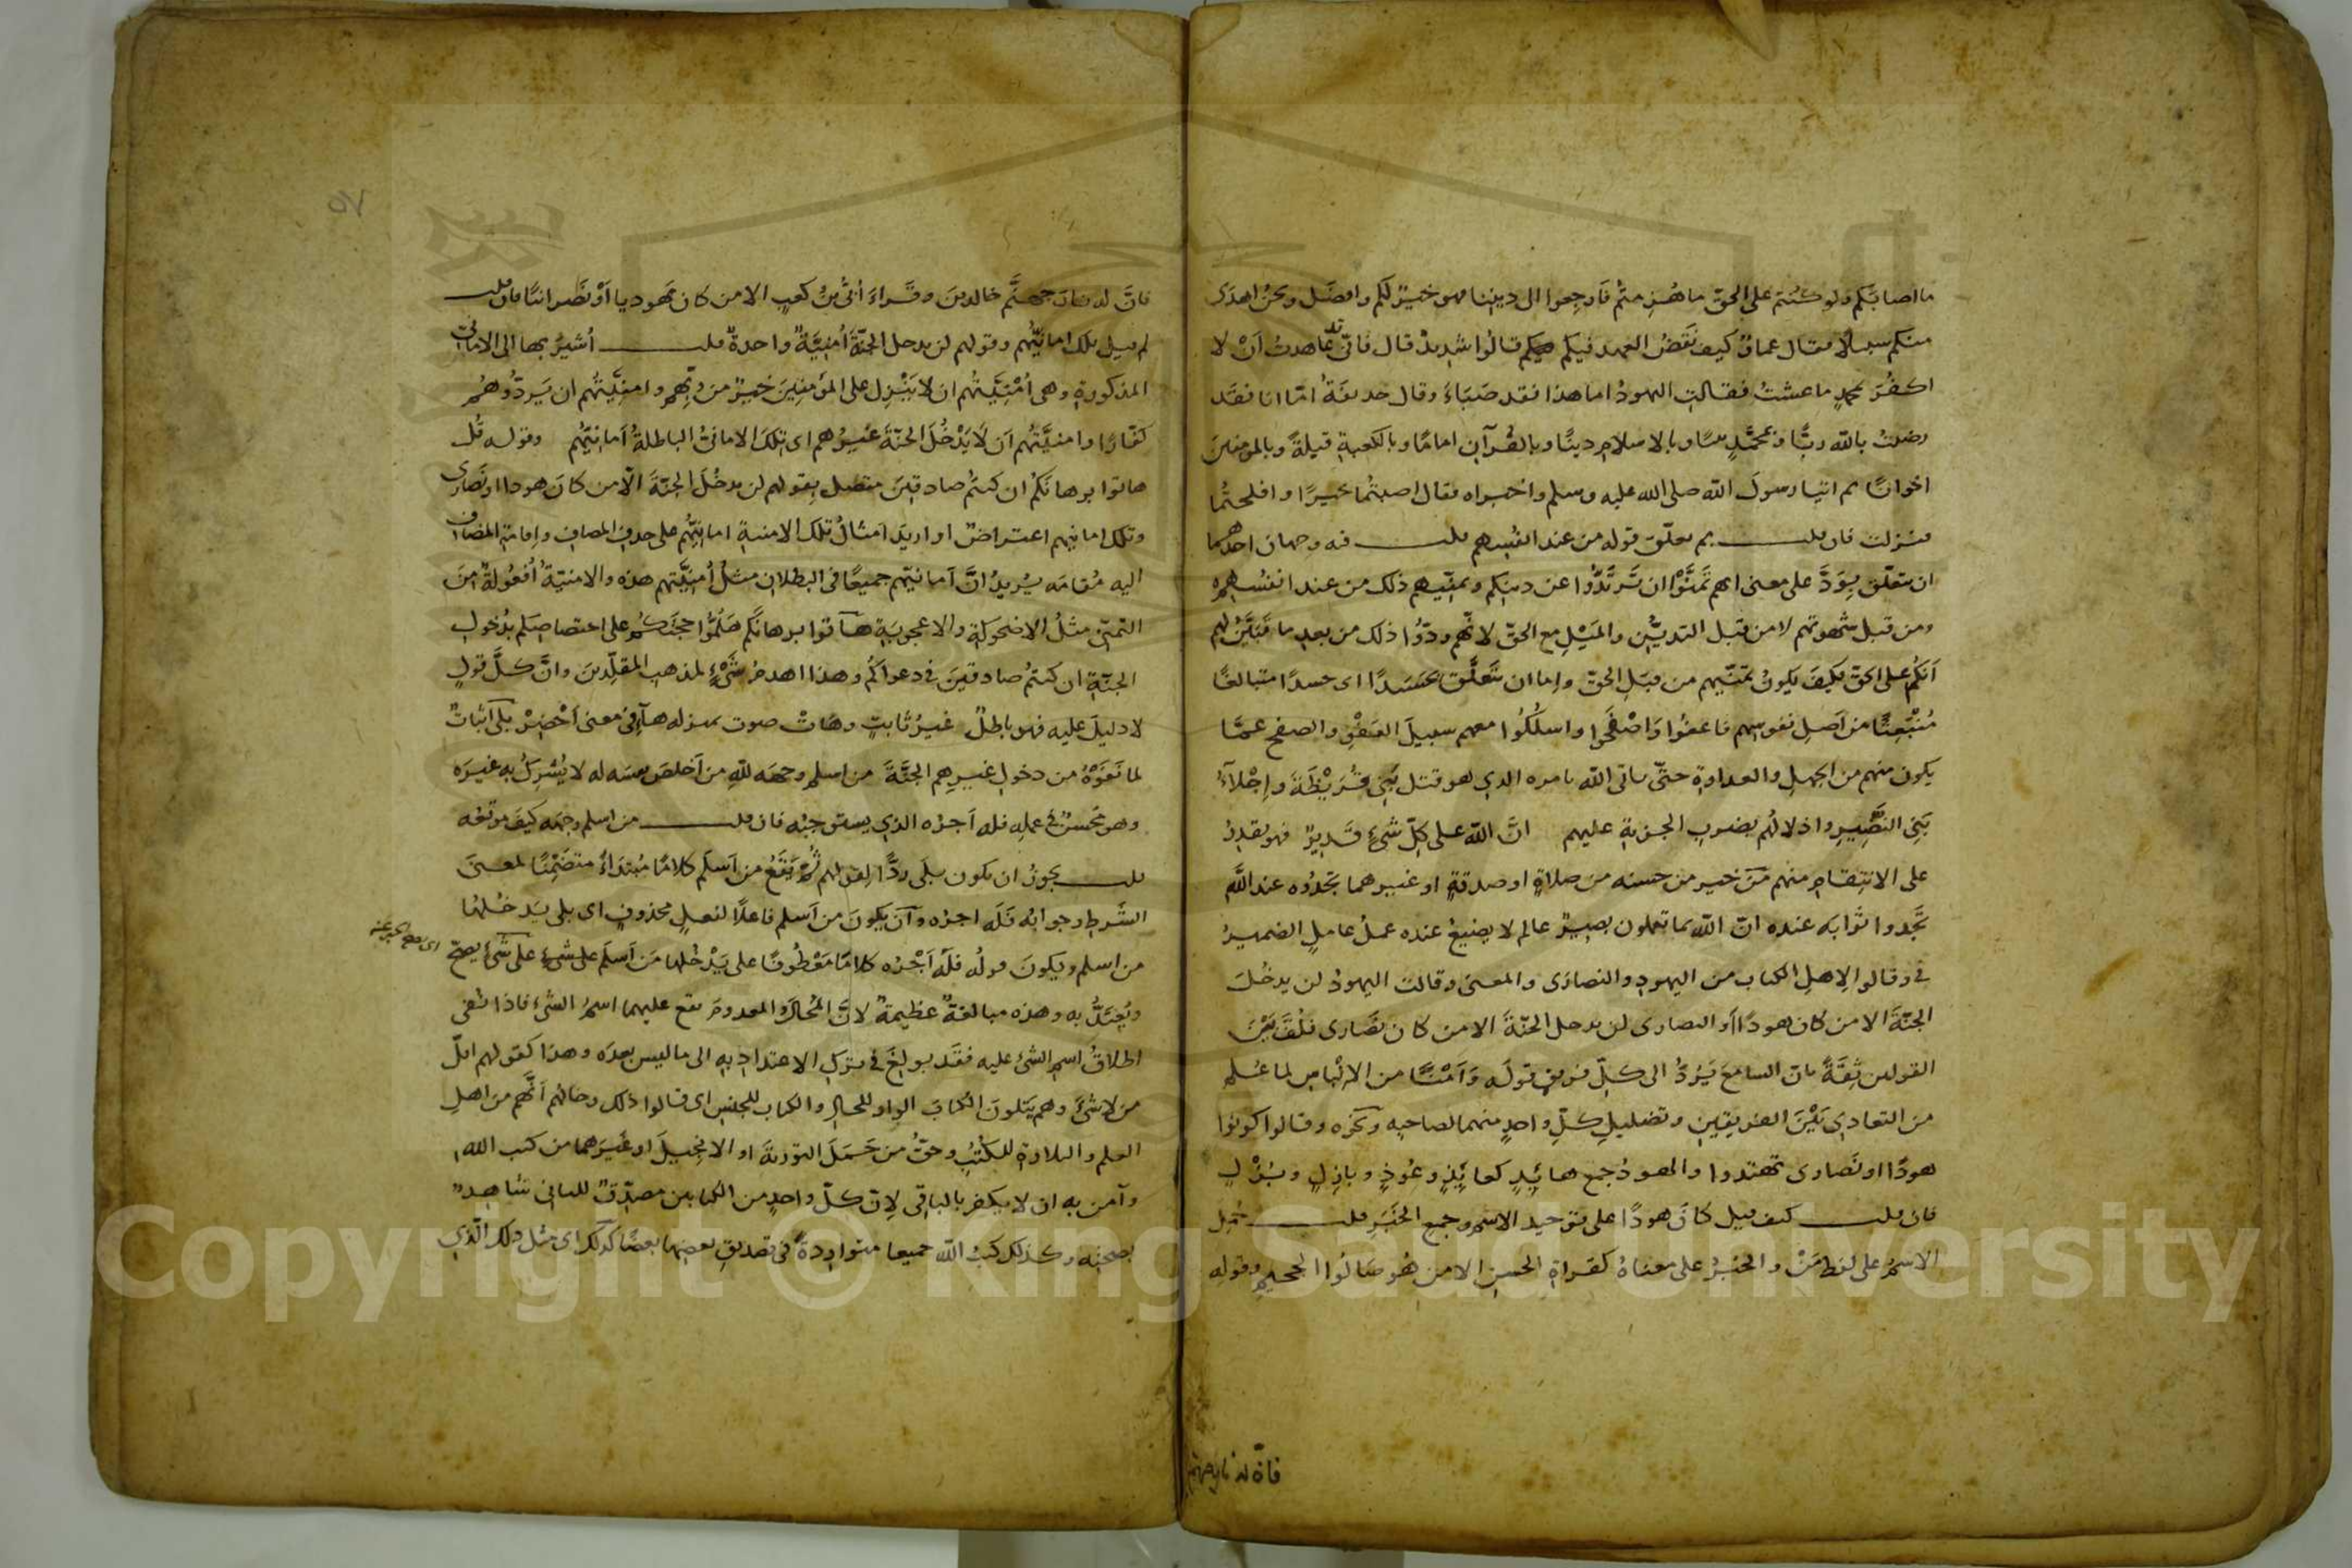 ما اصابكم ولو كنتم على الحق ما هزمتم فارجعوا الى ديننا فهو خير لكم وافضل ونحن اهدى
منكم سبيلا فقال عمار كيف نقض العهد فيكم قالوا شديد قال فانى قد عاهدت أن لا
اكفر بمحمد ما عشت فقالت اليهود اما هذا فقد صبأ وقال حذيفة امّا انا فقد
رضيت بالله ربّا وبمحمّد نبيّا وبالاسلام دينًا وبالقرآن امامًا وبالكعبة قبلة وبالمومنين
اخوانًا ثم اتيا رسول الله صلى الله عليه وسلم واخبراه فقال اصبتما خيرًا وافلحتما
فنزلت فان قلت بم تعلّق قوله من عند انفسهم قلت فيه وجهان احدهما
ان يتعلّق بودّ على معنى انهم تمنّوا ان ترتدّوا عن دينكم وتمنّيهم ذلك من عند انفسهم
ومن قبل شهوتهم لا من قبل التديّن والميل مع الحقّ لانّهم ودّوا ذلك من بعد ما تبيّن لهم
أنكم على الحق فكيف يكون تمنّيهم من قبل الحق واما ان يتعلّق بحسدًا اى حسدًا متبالغًا
منبعثًا من أصل نفوسهم فاعفوا واصفحوا واسلكوا معهم سبيل العفو والصفح عمّا
يكون منهم من الجهل والعداوة حتّى ياتى الله بامره الذي هو قتل بنى قريظة واجلاء
بني النضير واذلالهم بضرب الجزية عليهم انّ الله على كلّ شىء قدير فهو يقدر
على الانتقام منهم من خير من حسنه من صلاة او صدقة او غيرهما تجدوه عند الله
تجدوا ثوابه عنده انّ الله بما تعملون بصير عالم لا يضيع عنده عمل عامل الضمير
في وقالوا لاهل الكتاب من اليهود والنصارى والمعنى وقالت اليهود لن يدخل
الجنّة الا من كان هودًا او النصارى لن يدخل الجنّة الا من كان نصارى فلفّ بين
القولين ثقةً بان السامع يردّ الى كلّ فريق قوله وأمنًا من الالباس لما علم
من التعادي بين الفريقين وتضليل كلّ واحد منهما لصاحبه ونحوه وقالوا كونوا
هودًا او نصارى تهتدوا والهود جمع هائد كعائذ وعوذ وبازل وبزل
فان قلت كيف قيل كان هودًا على توحيد الاسم وجمع الخبر قلت حمل
الاسم على لفظ من والخبر على معناه كقراءة الحسن الا من هو صالوا الجحيم وقوله
فان له نار جهنم
٥٧
فانّ له نار جهنّم خالدين وقراء أبىّ بن كعب الا من كان يهوديا أو نصرانيّا فان قلت
لم قيل تلك امانيّهم وقولهم لن يدخل الجنّة أمنيّة واحدة قلت أشير بها الى الامانىّ
المذكورة وهى أمنيّتهم ان لا ينزل على المؤمنين خير من ربّهم وامنيّتهم ان يردّوهم
كفّارًا وامنيّتهم أن لا يدخل الجنّة غيرهم اى تلك الامانىّ الباطلة أمانيّهم وقوله قل
هاتوا برهانكم ان كنتم صادقين متصل بقولهم لن يدخل الجنّة الّا من كان هودا او نصارى
وتلك امانيهم اعتراض او اريد امثال تلك الامنية امانيّهم على حذف المضاف واقامة المضاف
اليه مقامه يريد انّ أمانيّهم جميعًا فى البطلان مثل أمنيّتهم هذه والامنيّة أفعولة من
التمنّى مثل الاضحوكة والاعجوبة هاتوا برهانكم هلمّوا حجتكم على اختصاصكم بدخول
الجنّة ان كنتم صادقين فى دعواكم وهذا اهدم شىء لمذهب المقلّدين وانّ كلّ قول
لا دليل عليه فهو باطل غير ثابت وهات صوت بمنزله هاء فى معنى أحضر بلى اثبات
لما نفوه من دخول غيرهم الجنّة من اسلم وجهه لله من أخلص نفسه له لا يشرك به غيره
وهو محسن فى عمله فله أجره الذي يستوجبه فان قلت من اسلم وجهه كيف موقعه
قلت يجوز ان يكون بلى ردًّا لقولهم ثم يقع من أسلم كلامًا مبتداءً متضمّنًا لمعنى
الشرط وجوابه فله اجره وأن يكون من أسلم فاعلًا لفعل محذوف اى بلى يدخلها
من اسلم ويكون قوله فله أجره كلامًا معطوفًا على يدخلها من أسلم على شىء على شىء يصحّ
ويعتدّ به وهذه مبالغة عظيمة لانّ المحال والمعدوم يقع عليهما اسم الشىء فاذا نفى
اطلاق اسم الشىء عليه فقد بولغ فى ترك الاعتداد به الى ما ليس بعده وهذا كقولهم اقلّ
من لا شىء وهم يتلون الكتاب الواو للحال والكتاب للجنس اى قالوا ذلك وحالهم أنّهم من اهل
العلم والتلاوة للكتب وحقّ من حمل التورية او الانجيل او غيرهما من كتب الله
وآمن به ان لا يكفر بالباقى لانّ كلّ واحد من الكتابين مصدّق للثانى شاهد
بصحته وكذلك كتب الله جميعا متواردة فى تصديق بعضها بعضًا كذلك اى مثل ذلك الّذي